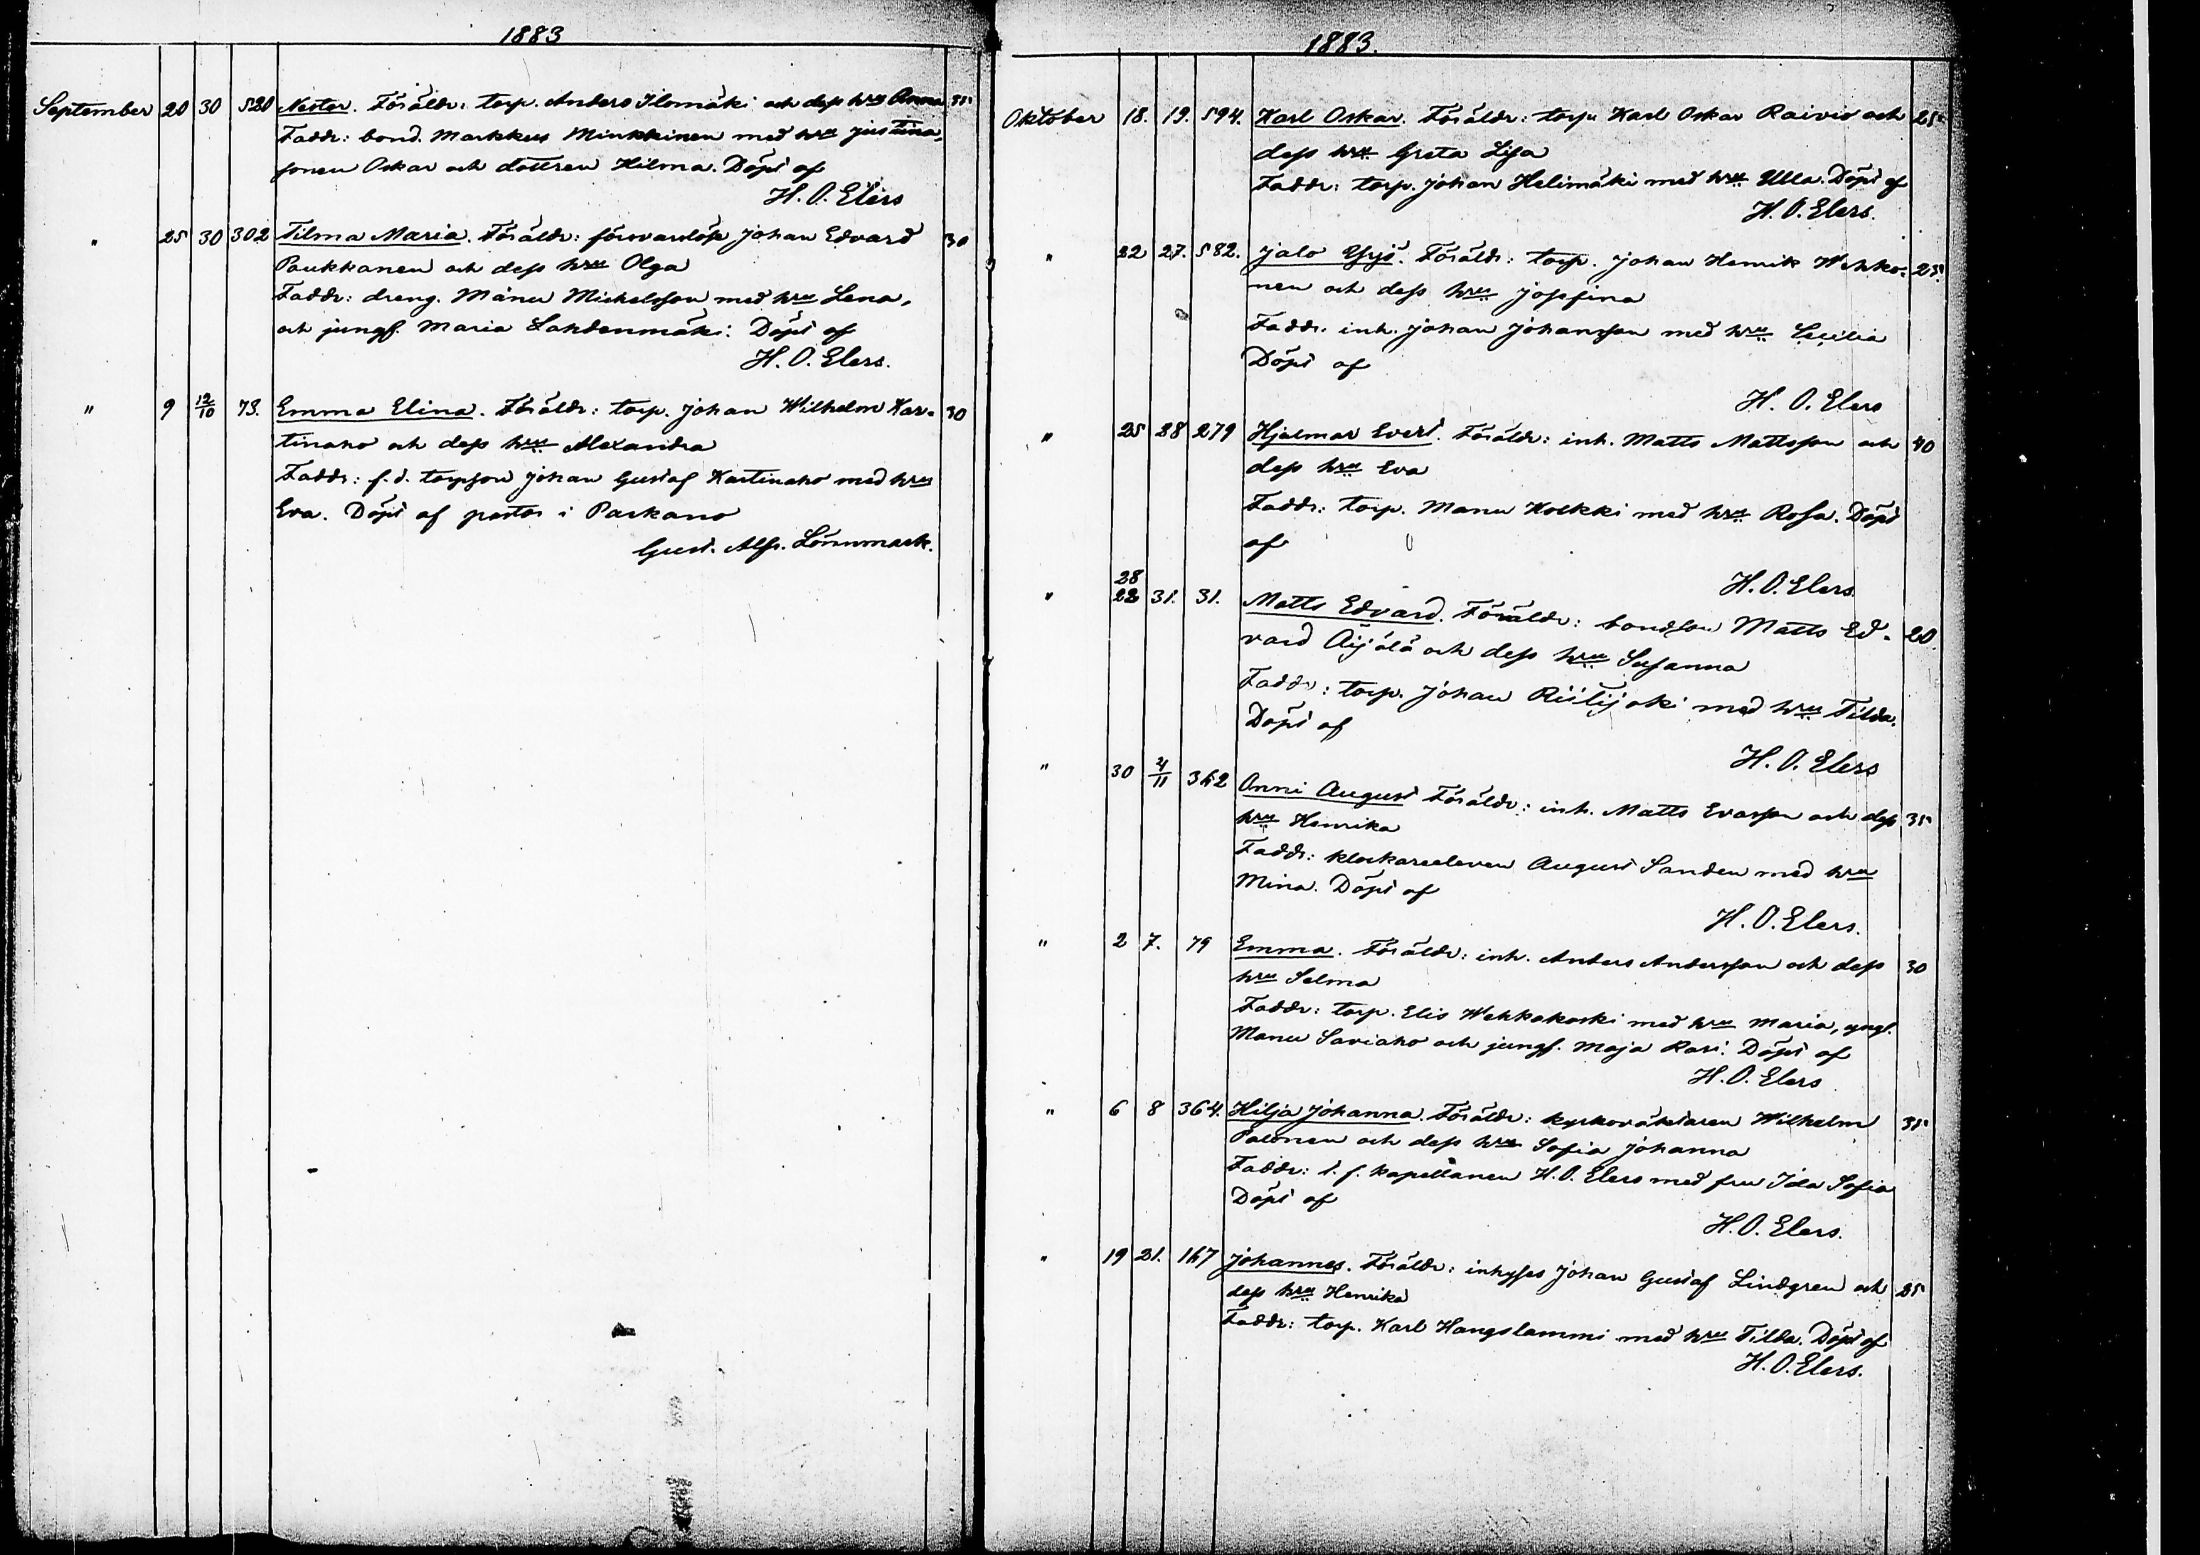 1883
September 20 30 520 Nestor. Föräldr: torp. Anders Ilomäki och dess hru Anna 35
Faddr: bond. Markkus Minkkinen med hru Justina,
sonen Oskar och dottren Hilma. Döpt af
H. O. Elers
" 25 30 302 Tilma Maria. Föräldr: försvarslöse Johan Edvard 30
Paukkanen och dess hru Olga
Faddr: dreng. Mânu Michelsson med hru Lena,
och jungf. Maria Lahdenmäki: Döpt af
H. O. Elers.
" 9 12/10 73. Emma Elina. Föräldr: torp. Johan Wilhelm Kar= 30
tinaho och dess hru Alexandra
Faddr: f. d. torpson Johan Gustaf Kartinaho med hru
Eva. Döpt af pastor i Parkano
Gust. Alfr. Lönnmark.
1883.
Oktober 18. 19. 594. Karl Oskar. Föräldr: torp. Karl Oskar Raivio och 25
dess hru Greta Lisa
Faddr: torp. Johan Helimäki med hru Ulla. Döpt af
H. O. Elers.
" 22 27. 582. Jalo Yrjö. Föräldr: torp. Johan Henrik Wehko= 25
nen och dess hru Josefina
Faddr. inh. Johan Johansson med hru Cecilia
Döpt af
H. O. Elers
" 25 28 279 Hjalmar Evert. Föräldr: inh. Matts Mattsson och 40
dess hru Eva
Faddr: torp. Manu Kolkki med hru Rosa. Döpt
af
H. O. Elers.
28
" 31. 31. Matts Edvard. Föräldr: bondson Matts Ed= 20.
vard Äijälä och dess hru Susanna
Faddr: torp. Johan Ristijoki med hru Tilda.
Döpt af
H. O. Elers
" 30 4/11 362 Onni August Föräldr: inh. Matts Evasson och dess 35
hru Henrika
Faddr: klockareeleven August Sanden med hru
Mina. Döpt af
H. O. Elers.
" 2 7. 79 Emma. Föräldr: inh. Anders Andersson och dess 30
hru Selma
Faddr: torp. Elis Wehkakoski med hru Maria, yngl.
Manu Saviaho och jungf. Maja Rasi. Döpt af
H. O. Elers
" 6 8 364. Hilja Johanna. Föräldr: kyrkoväktaren Wilhelm 35
Palonen och dess hru Sofia Johanna
Faddr: t. f. kapellanen H. O. Elers med fru Ida Sofia
Döpt af
H. O. Elers.
" 19 21. 167 Johannes. Föräldr: inhyses Johan Gustaf Lindgren och 25
dess hru Henrika
Faddr: torp. Karl Hangslammi med hru Tilda. Döpt af
H. O. Elers.